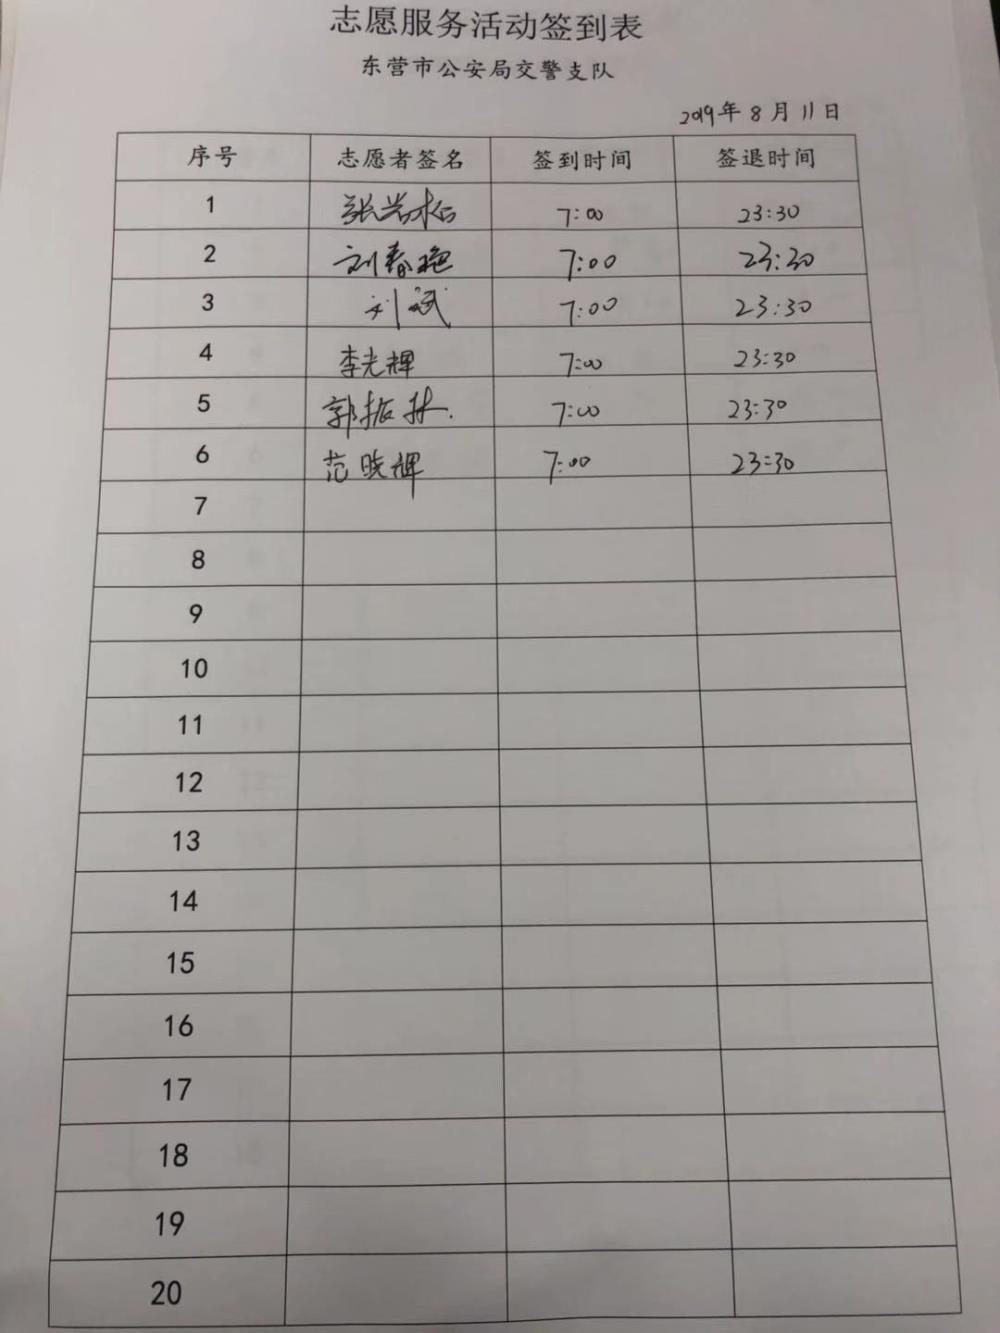 志愿服务活动签到表
东营市公安局交警支队
2019年8月11日
序号 志愿者签名 签到时间 签退时间
1 7:00 23:30
2 刘春艳 7:00 23:30
3 刘斌 7:00 23:30
4 李光辉 7:00 23:30
5 郭振林. 7:00 23:30
6 范晓辉 7:00 23:30
7
8
9
10
11
12
13
14
15
16
17
18
19
20